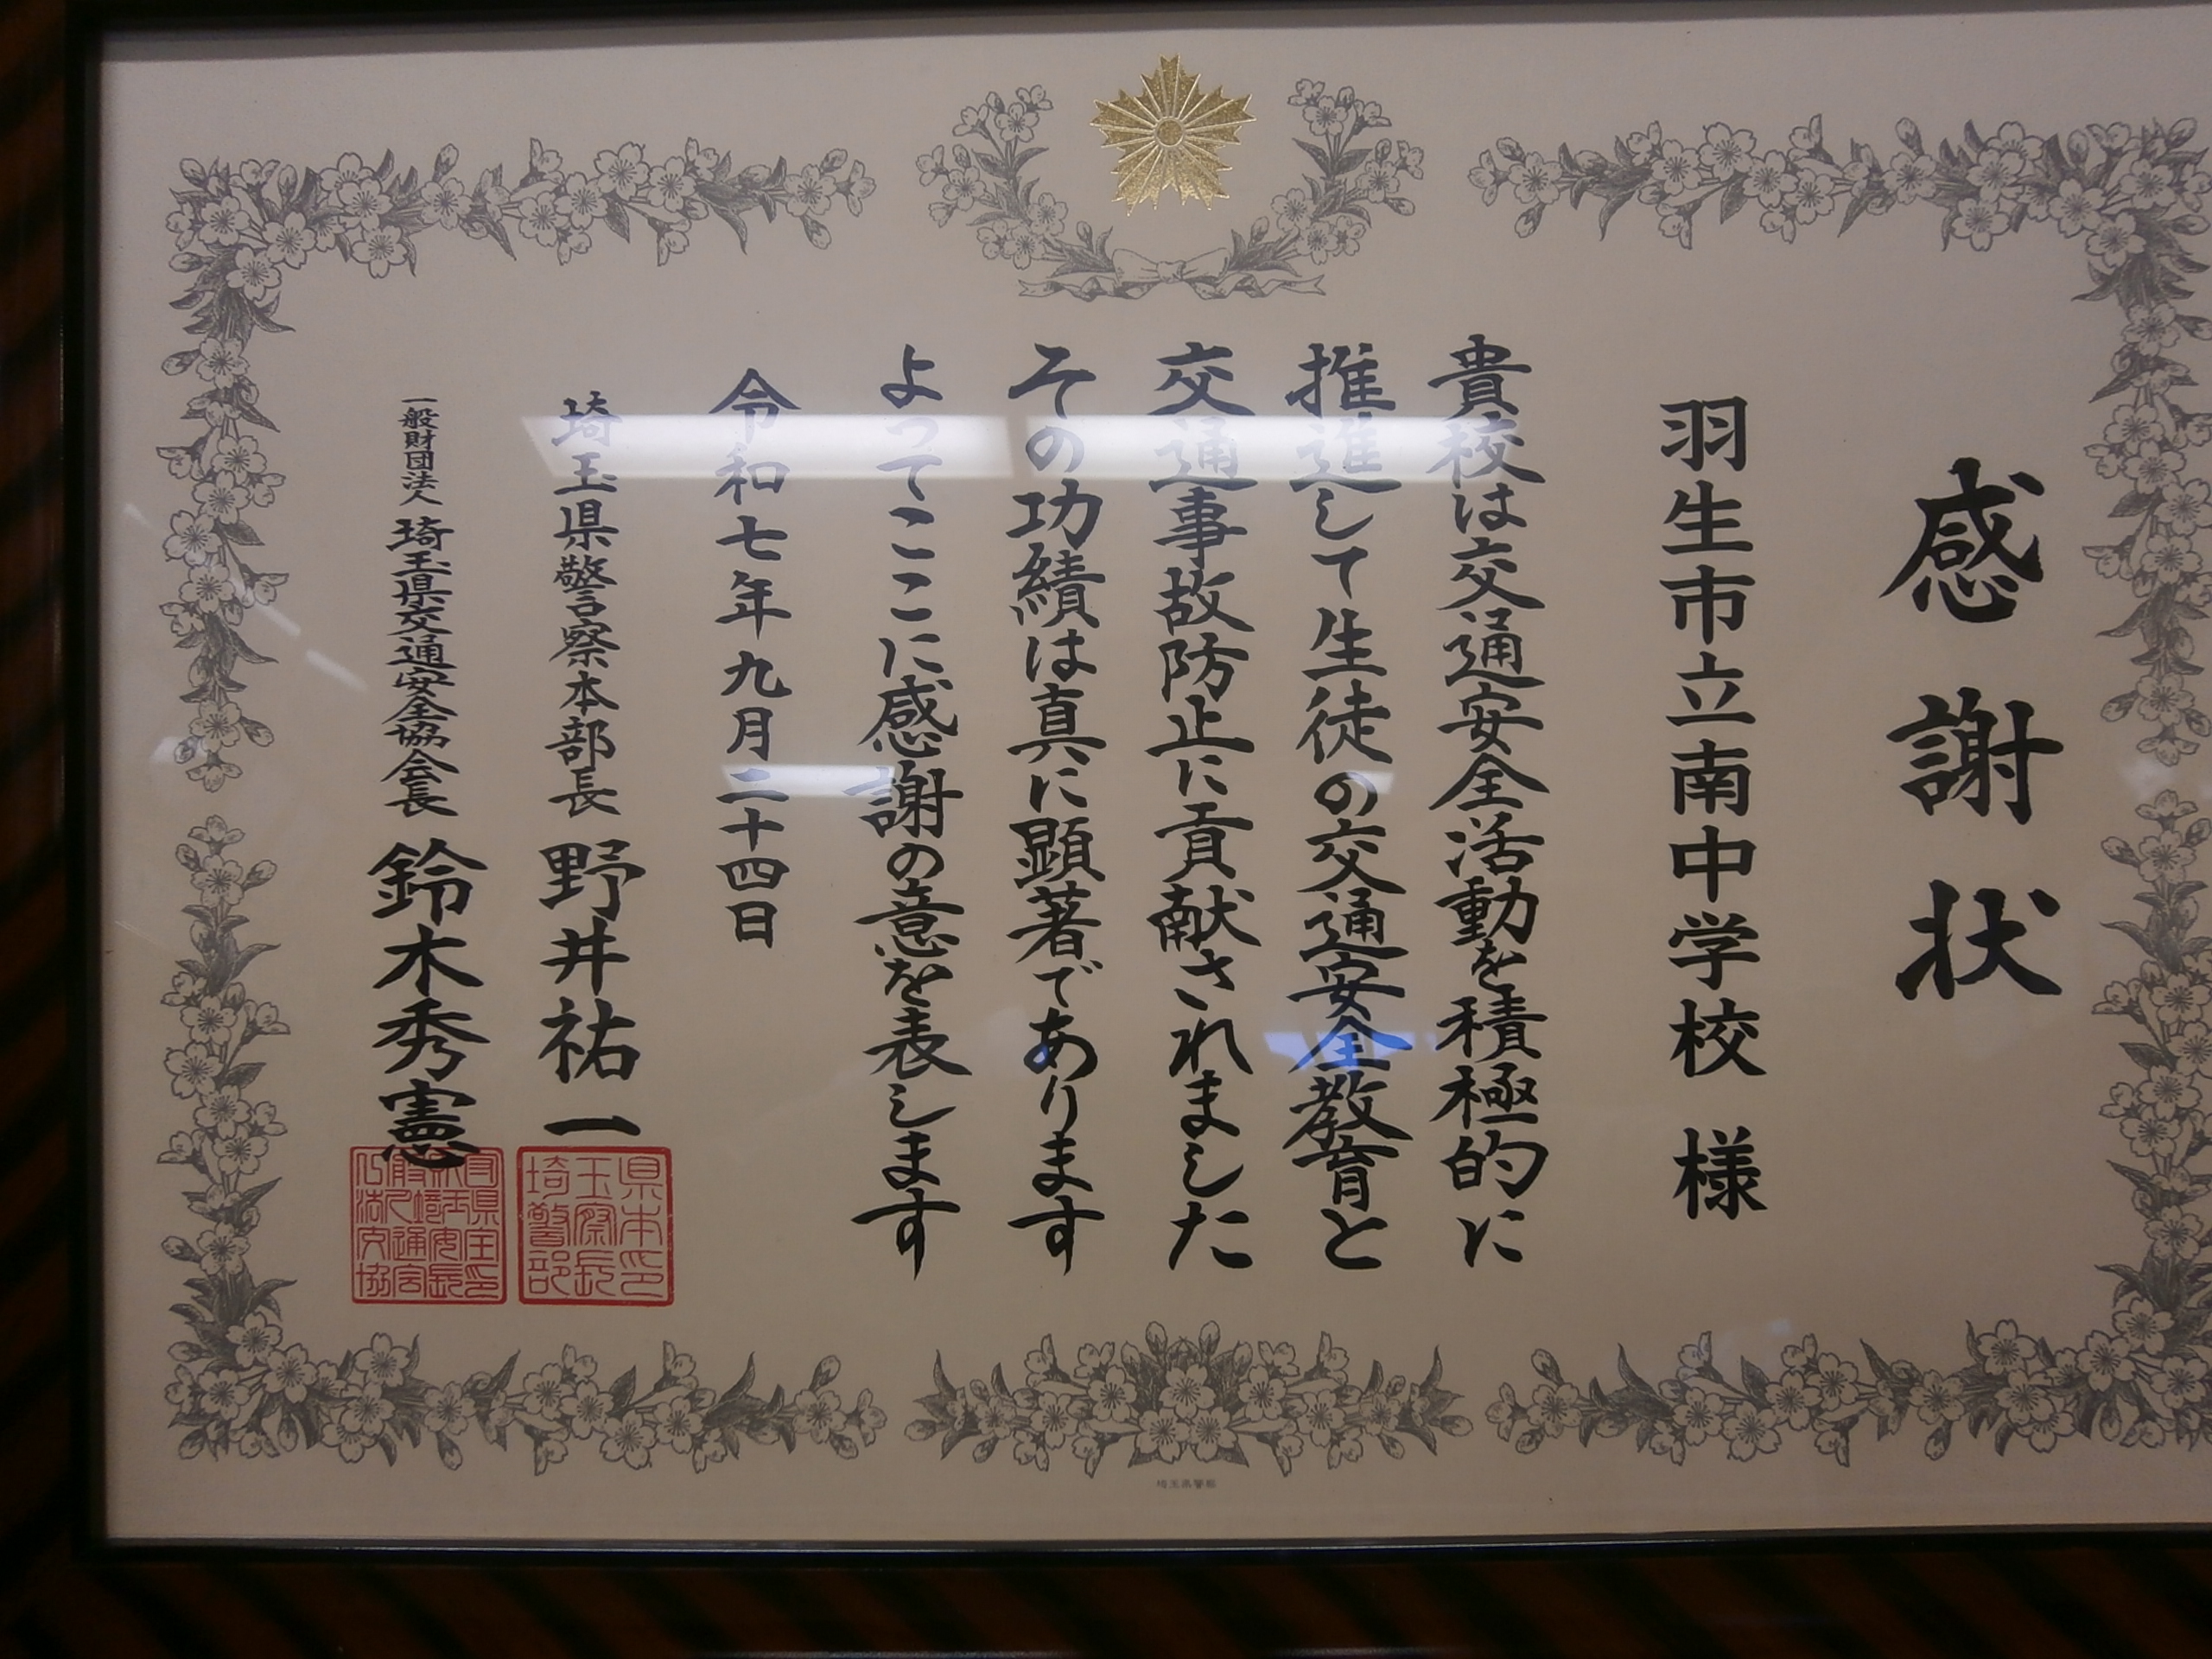 感謝状
羽生市立南中学校 様
貴校は交通安全活動を積極的に
推進して生徒の交通安全教育と
交通事故防止に貢献されました
その功績は真に顕著であります
よってここに感謝の意を表します
令和七年九月二十四日
埼玉県警察本部長 野井祐一
一般財団法人 埼玉県交通安全協会長 鈴木秀憲
埼玉県警察本部長印
埼玉県警察